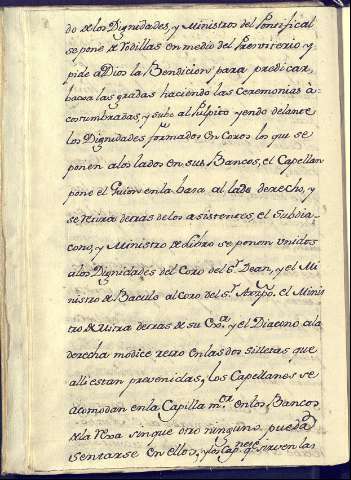 do de los Dignidades, y Ministros del Pontifical
se pone de Rodillas en medio del Presviterio y
pide a Dios la Bendicion para predicar,
baxa las gradas haciendo las Ceremonias à-
costumbradas, y sube al Pulpito yendo delante
los Dignidades formados en Coros los que se
ponen a los lados en sus Bancos, el Capellan
pone el Guion en la basa al lado derecho, y
se retira detras de los asistentes, el Subdia-
cono, y Ministro de Libro se ponen unidos
a los Dignidades del Coro del Sr. Dean, y el Mi
nistro de Baculo al Coro del Sr. Arzpo. el Minis
tro de Mitra detras de su Exa. y el Diacono a la
derecha modice retro en las dos silletas que
alli estan prevenidas, los Capellanes se
acomodan en la Capilla mor. en los Bancos
de la Ygª sin que otro ninguno pueda
sentarse en ellos, y los Cap. qe sirven las